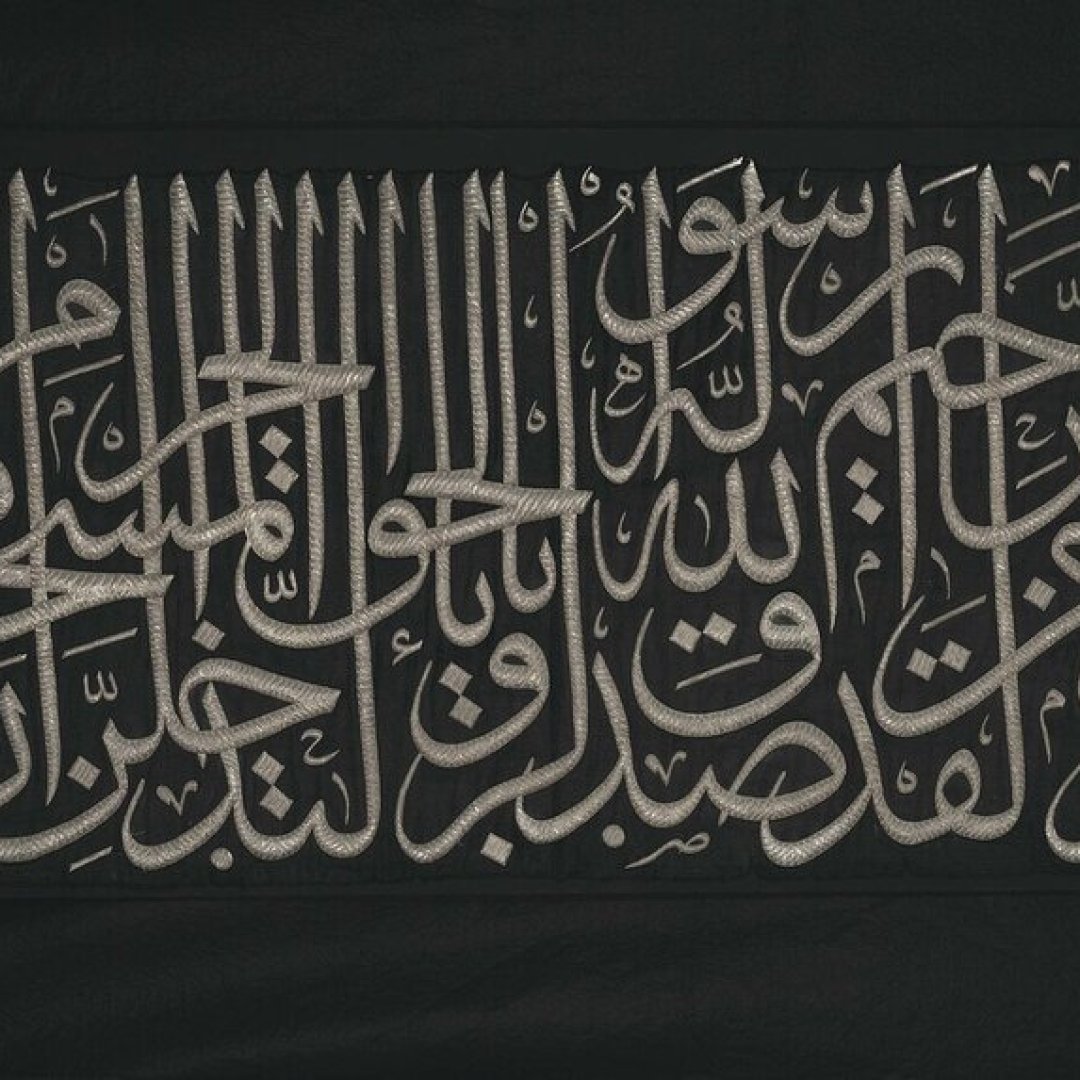 الرحيم لقد صدق الله رسوله الرءيا بالحق لتدخلن المسجد الحرام